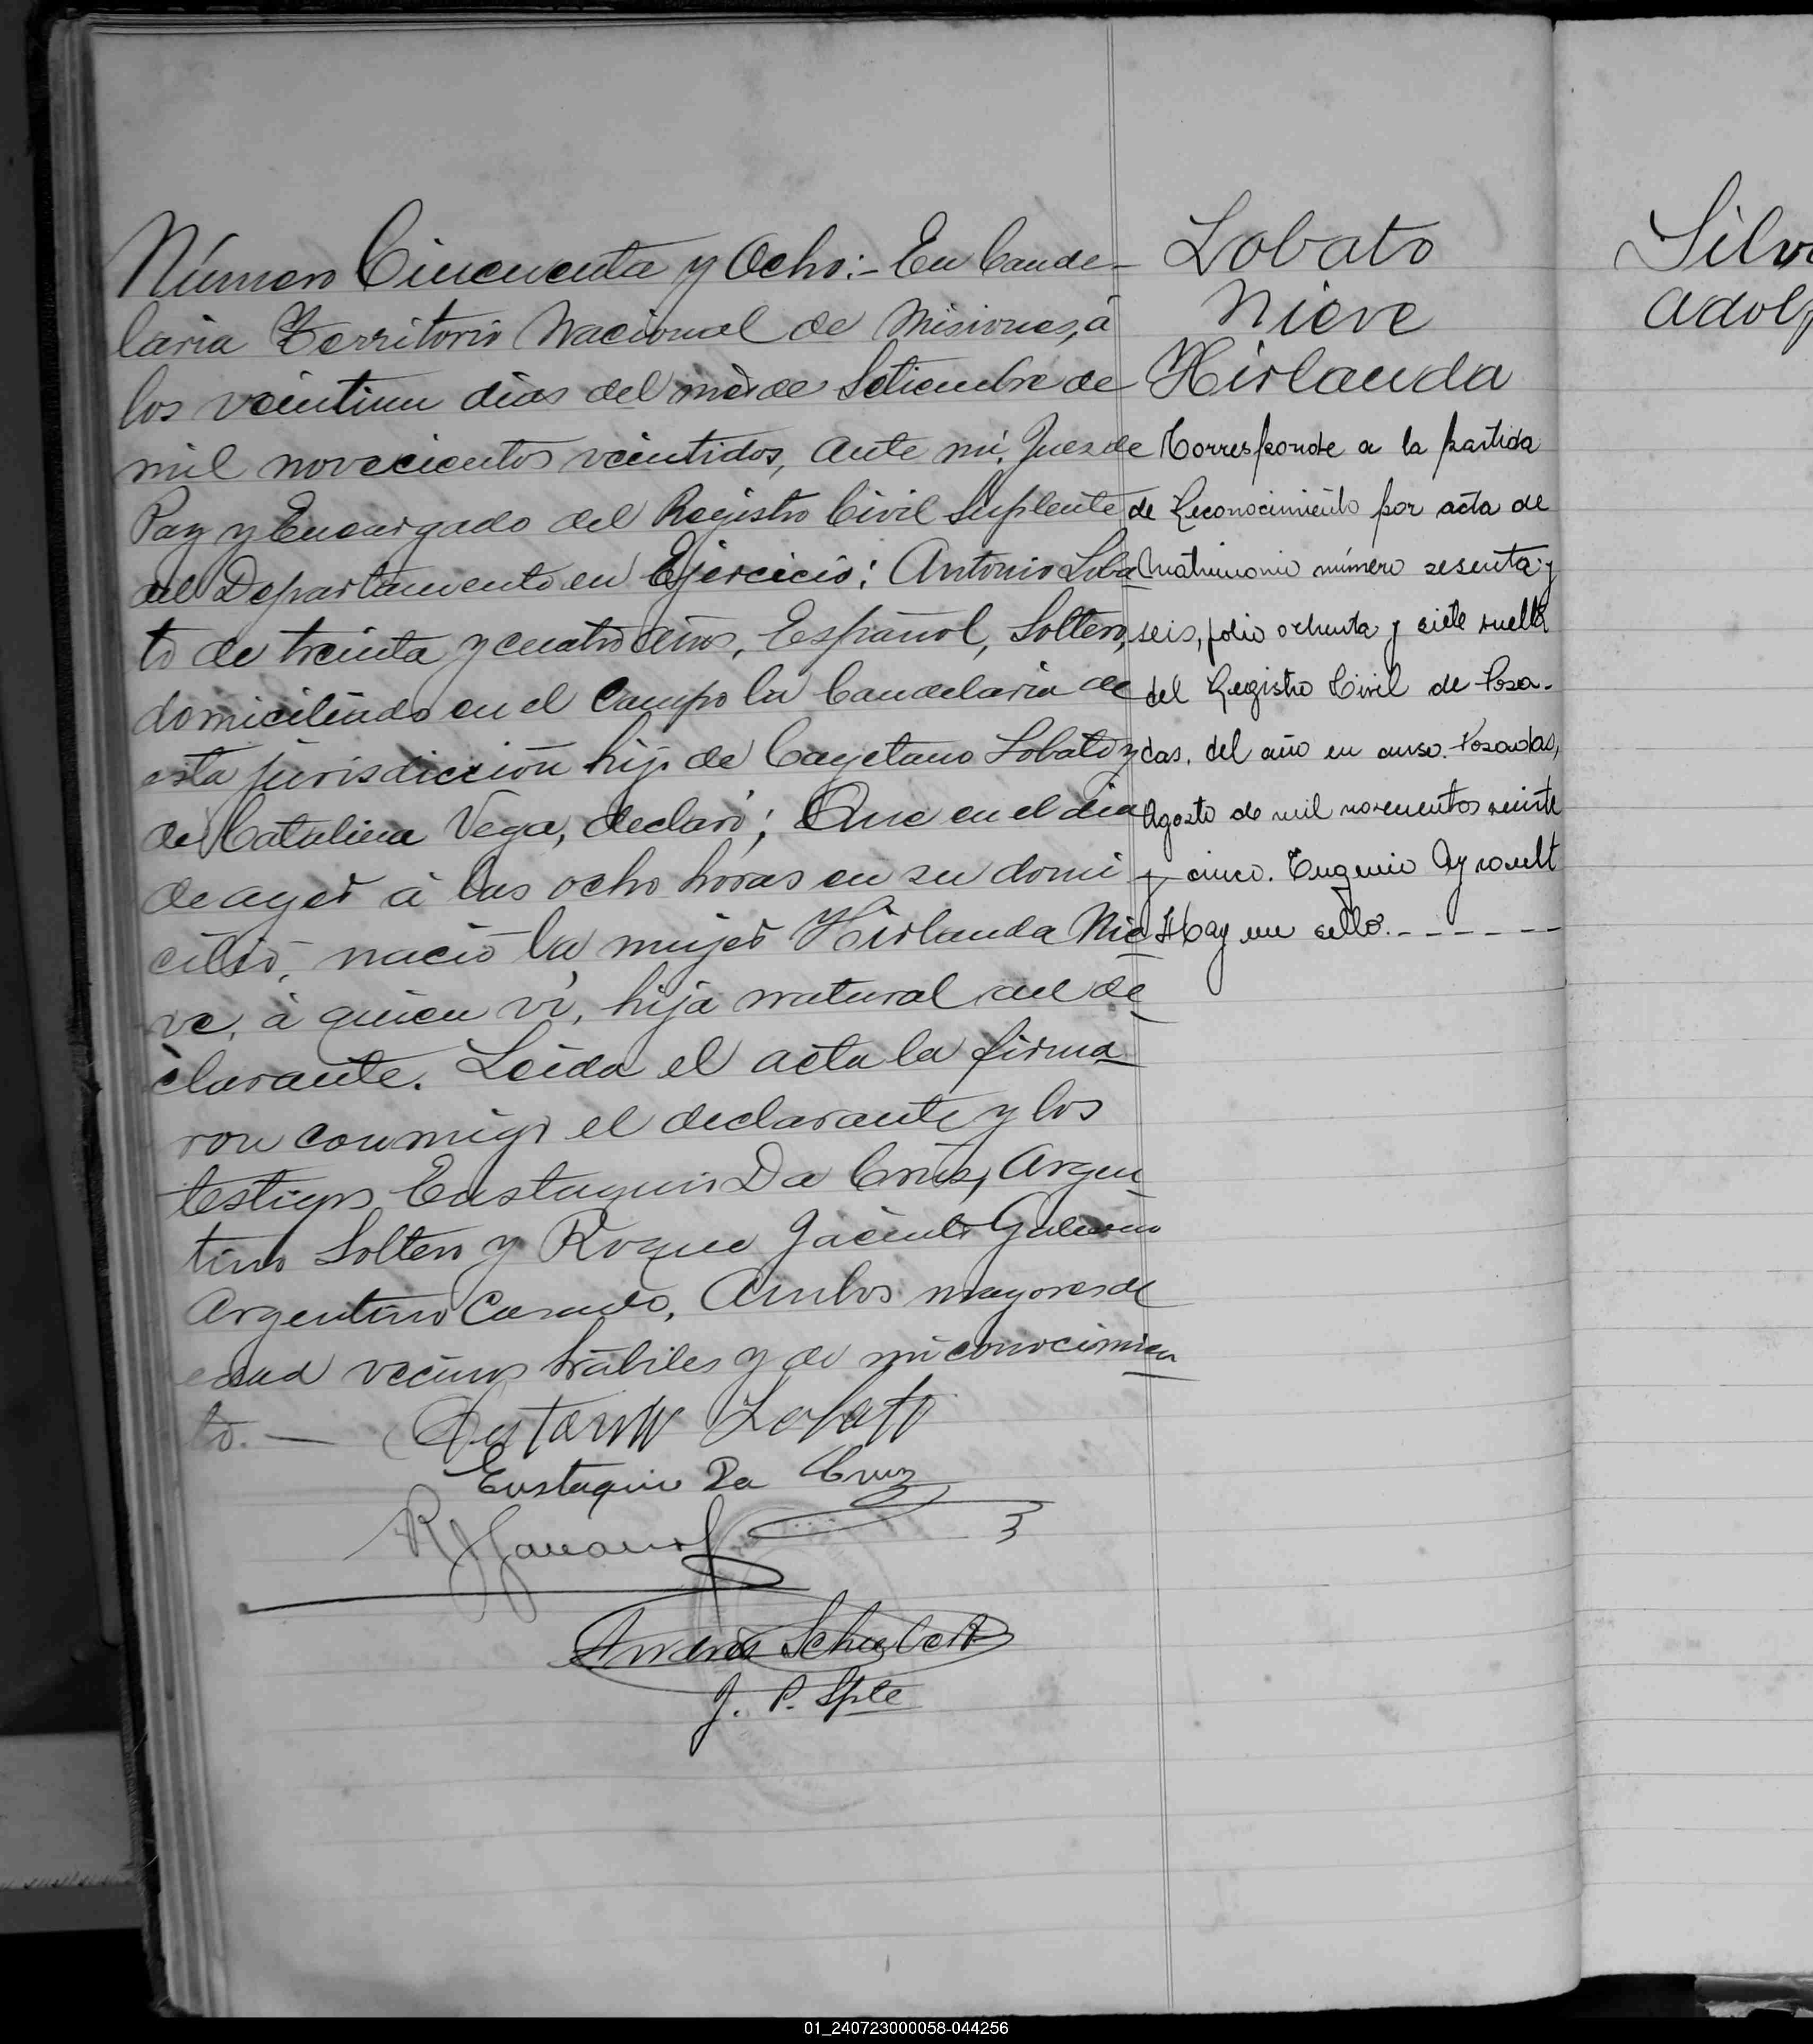 Número Cincuenta y Ocho:- En Cande-
laria Territorio Nacional de Misiones, á
los veintiun dias del més de Setiembre de
mil novecientos veintidos, ante mi, Juez de
Paz y Encargado del Registro Civil Suplente
del Departamento en Ejercicio; Antonio Loba
to de treinta y cuatro años, Español, Soltero,
domiciliado en el Campo la Candelaria de
esta jurisdicción hijo de Cayetano Lobato y
de Catalina Vega, declaró; Que en el dia
de ayer á las ocho horas en su domi
cilio, nació la mujer Hirlanda Nie
ve, á quien vi, hija natural del de
clarante. Leida el acta la firma
ron conmigo el declarante y los
testigos Eustaquio Da Cruz, Argen
tino Soltero y Roque Jacinto
Argentino Casado, Ambos mayores de
edad vecinos hábiles y de mi conocimien
to. —
Lobato
Eustaquio Da Cruz
J. P. Splte
Lobato
Nieve
Hirlanda
Corresponde a la partida
de Reconocimiento por acta de
matrimonio número sesenta y
seis, folio ochenta y siete vuelta
del Registro Civil de Posa-
das, del año en curso. Posadas,
Agosto de mil novecientos veinte
y cinco. Eugenio Ayrault
Hay un sello.------
Silv
Adol
01_240723000058-044256